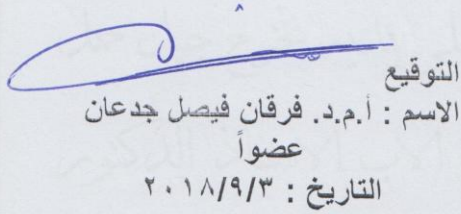 التوقيع
الاسم : أ.م.د. فرقان فيصل جدعان
عضواً
التاريخ : ٢٠١٨/٩/٣